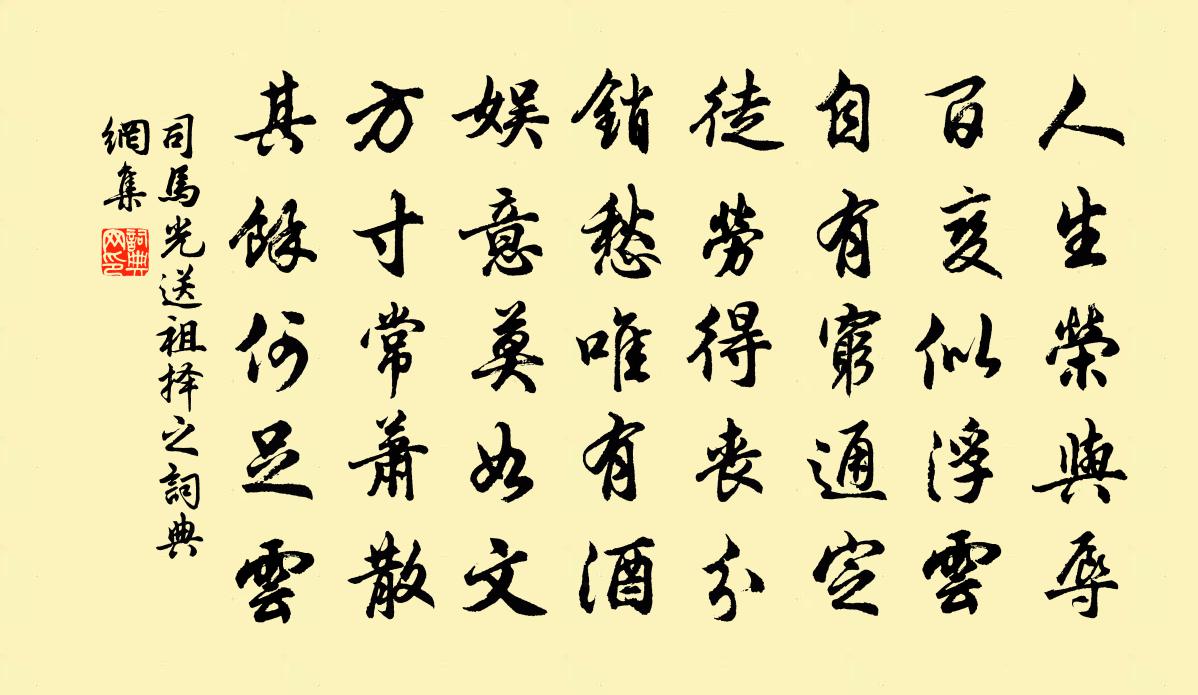 人生榮與辱
百变似浮雲
自有窮通定
徒勞得喪分
銷愁唯有酒
娱意莫如文
方寸常蕭散
其餘何足雲
司馬光送祖择之詞典
網集
詞典網印